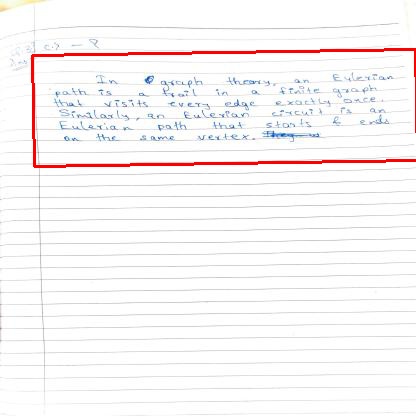 In graph theory, an Eylerian
path is a trail in a finite graph
that visits every edge exactly once.
Similarly, an Eulerian circuit is an
Eulerian path that starts & ends
on the same vertex.